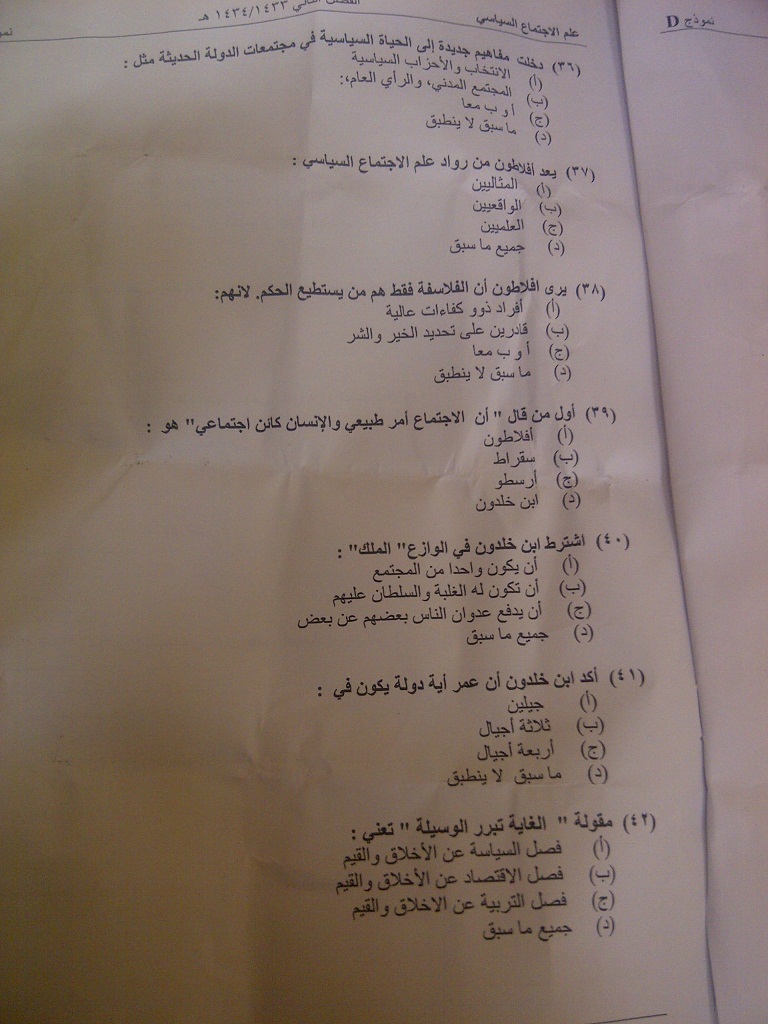 نموذج D
علم الاجتماع السياسي
الفصل الثاني ١٤٣٤/١٤٣٣ هـ
(٣٦) دخلت مفاهيم جديدة إلى الحياة السياسية في مجتمعات الدولة الحديثة مثل :
(أ) الانتخاب والأحزاب السياسية
(ب) المجتمع المدني، والرأي العام،:
(ج) أ و ب معا
(د) ما سبق لا ينطبق
(٣٧) يعد أفلاطون من رواد علم الاجتماع السياسي :
(أ) المثاليين
(ب) الواقعيين
(ج) العلميين
(د) جميع ما سبق
(٣٨) يرى افلاطون أن الفلاسفة فقط هم من يستطيع الحكم. لانهم:
(أ) أفراد ذوو كفاءات عالية
(ب) قادرين على تحديد الخير والشر
(ج) أ و ب معا
(د) ما سبق لا ينطبق
(٣٩) أول من قال " أن الاجتماع أمر طبيعي والإنسان كائن اجتماعي" هو :
(أ) أفلاطون
(ب) سقراط
(ج) أرسطو
(د) ابن خلدون
(٤٠) اشترط ابن خلدون في الوازع" الملك" :
(أ) أن يكون واحدا من المجتمع
(ب) أن تكون له الغلبة والسلطان عليهم
(ج) أن يدفع عدوان الناس بعضهم عن بعض
(د) جميع ما سبق
(٤١) أكد ابن خلدون أن عمر أية دولة يكون في :
(أ) جيلين
(ب) ثلاثة أجيال
(ج) أربعة أجيال
(د) ما سبق لا ينطبق
(٤٢) مقولة " الغاية تبرر الوسيلة " تعني :
(أ) فصل السياسة عن الأخلاق والقيم
(ب) فصل الاقتصاد عن الأخلاق والقيم
(ج) فصل التربية عن الاخلاق والقيم
(د) جميع ما سبق